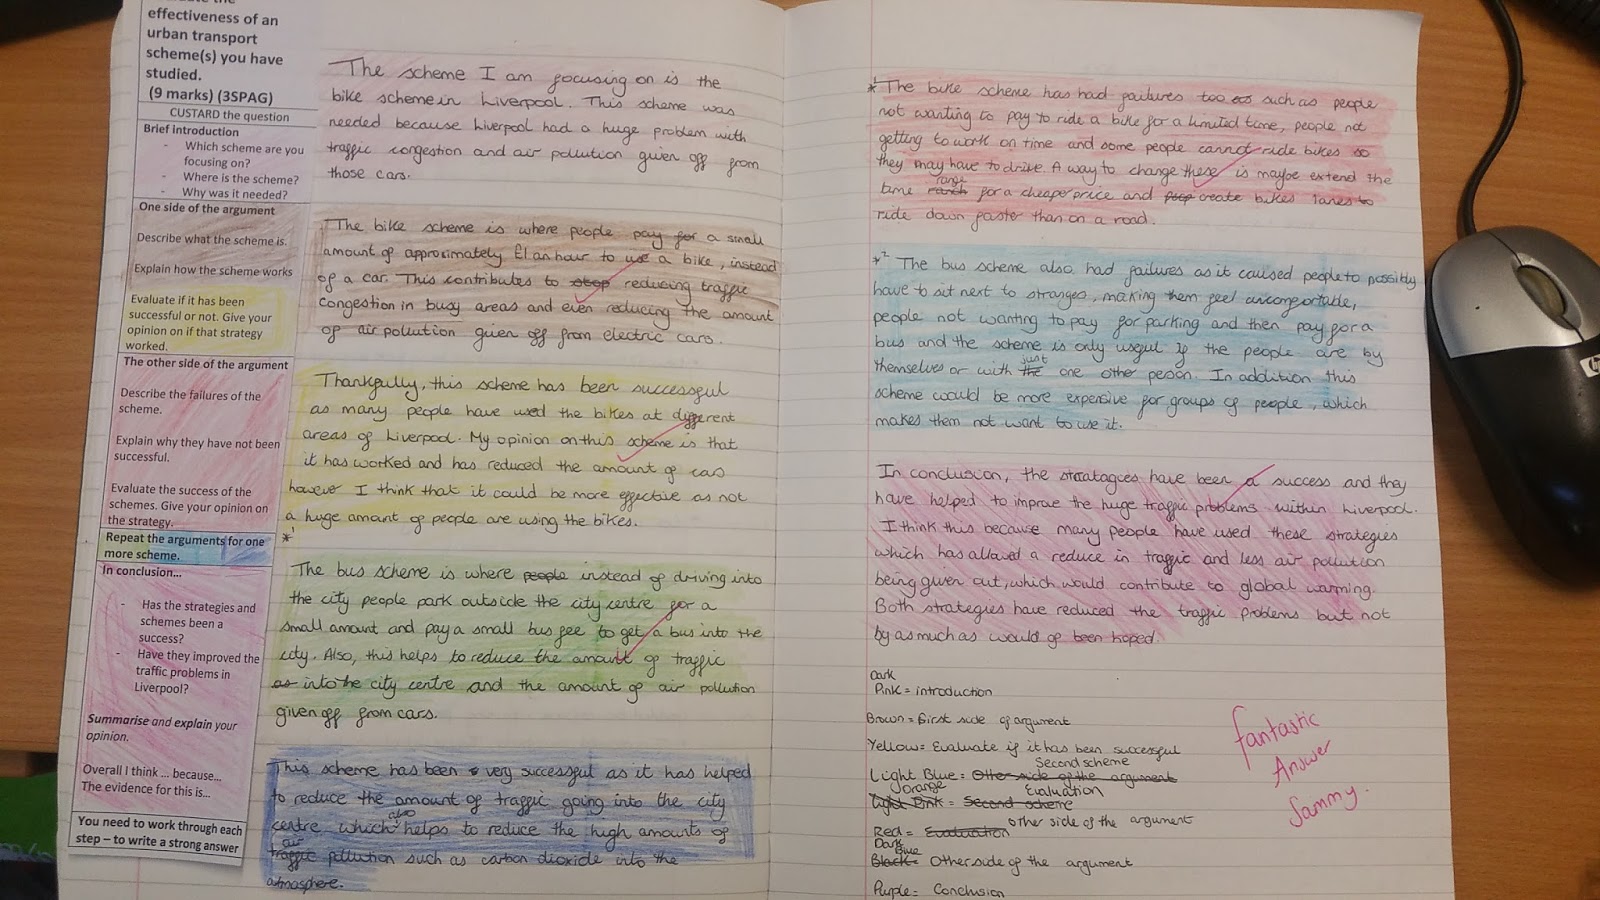 effectiveness of an
urban transport
scheme(s) you have
studied.
(9 marks) (3SPAG)
CUSTARD the question
Brief introduction
- Which scheme are you
focusing on?
- Where is the scheme?
- Why was it needed?
One side of the argument
Describe what the scheme is.
Explain how the scheme works
Evaluate if it has been
successful or not. Give your
opinion on if that strategy
worked.
The other side of the argument
Describe the failures of the
scheme.
Explain why they have not been
successful.
Evaluate the success of the
schemes. Give your opinion on
the strategy.
Repeat the arguments for one
more scheme.
In conclusion...
- Has the strategies and
schemes been a
success?
- Have they improved the
traffic problems in
Liverpool?
Summarise and explain your
opinion.
Overall I think ... because...
The evidence for this is...
You need to work through each
step – to write a strong answer
The scheme I am focusing on is the
bike scheme in Liverpool. This scheme was
needed because Liverpool had a huge problem with
traffic congestion and air pollution given off from
those cars.
The bike scheme is where people pay for a small
amount of approximately £1 an hour to use a bike, instead
of a car. This contributes to stop reducing traffic
congestion in busy areas and even reducing the amount
of air pollution given off from electric cars.
Thankfully, this scheme has been successful
as many people have used the bikes at different
areas of Liverpool. My opinion on this scheme is that
it has worked and has reduced the amount of cars
however I think that it could be more effective as not
a huge amount of people are using the bikes.
*1
The bus scheme is where people instead of driving into
the city people park outside the city centre for a
small amount and pay a small bus fee to get a bus into the
city. Also, this helps to reduce the amount of traffic
as into the city centre and the amount of air pollution
given off from cars.
This scheme has been very successful as it has helped
to reduce the amount of traffic going into the city
centre which also helps to reduce the high amounts of
air traffic pollution such as carbon dioxide into the
atmosphere.
*1 The bike scheme has had failures too as such as people
not wanting to pay to ride a bike for a limited time, people not
getting to work on time and some people cannot ride bikes so
they may have to drive. A way to change these is maybe extend the
time range for a cheaper price and create bikes lanes to
ride down faster than on a road.
*2 The bus scheme also had failures as it caused people to possibly
have to sit next to stranges, making them feel uncomfortable,
people not wanting to pay for parking and then pay for a
bus and the scheme is only useful if the people are by
themselves or with just the one other person. In addition this
scheme would be more expensive for groups of people, which
makes them not want to use it.
In conclusion, the stratagies have been a success and they
have helped to improve the huge traffic problems within Liverpool.
I think this because many people have used these strategies
which has allowed a reduce in traffic and less air pollution
being given out, which would contribute to global warming.
Both strategies have reduced the traffic problems but not
by as much as would of been hoped.
Dark
Pink = introduction
Brown = First side of argument
Yellow = Evaluate if it has been successful
Second scheme
Light Blue = Other side of the argument
orange Evaluation
Light Pink = Second scheme
Red = Evaluation other side of the argument
Dark Blue
Black = Other side of the argument
Purple = Conclusion
fantastic
Answer
Sammy.
hp